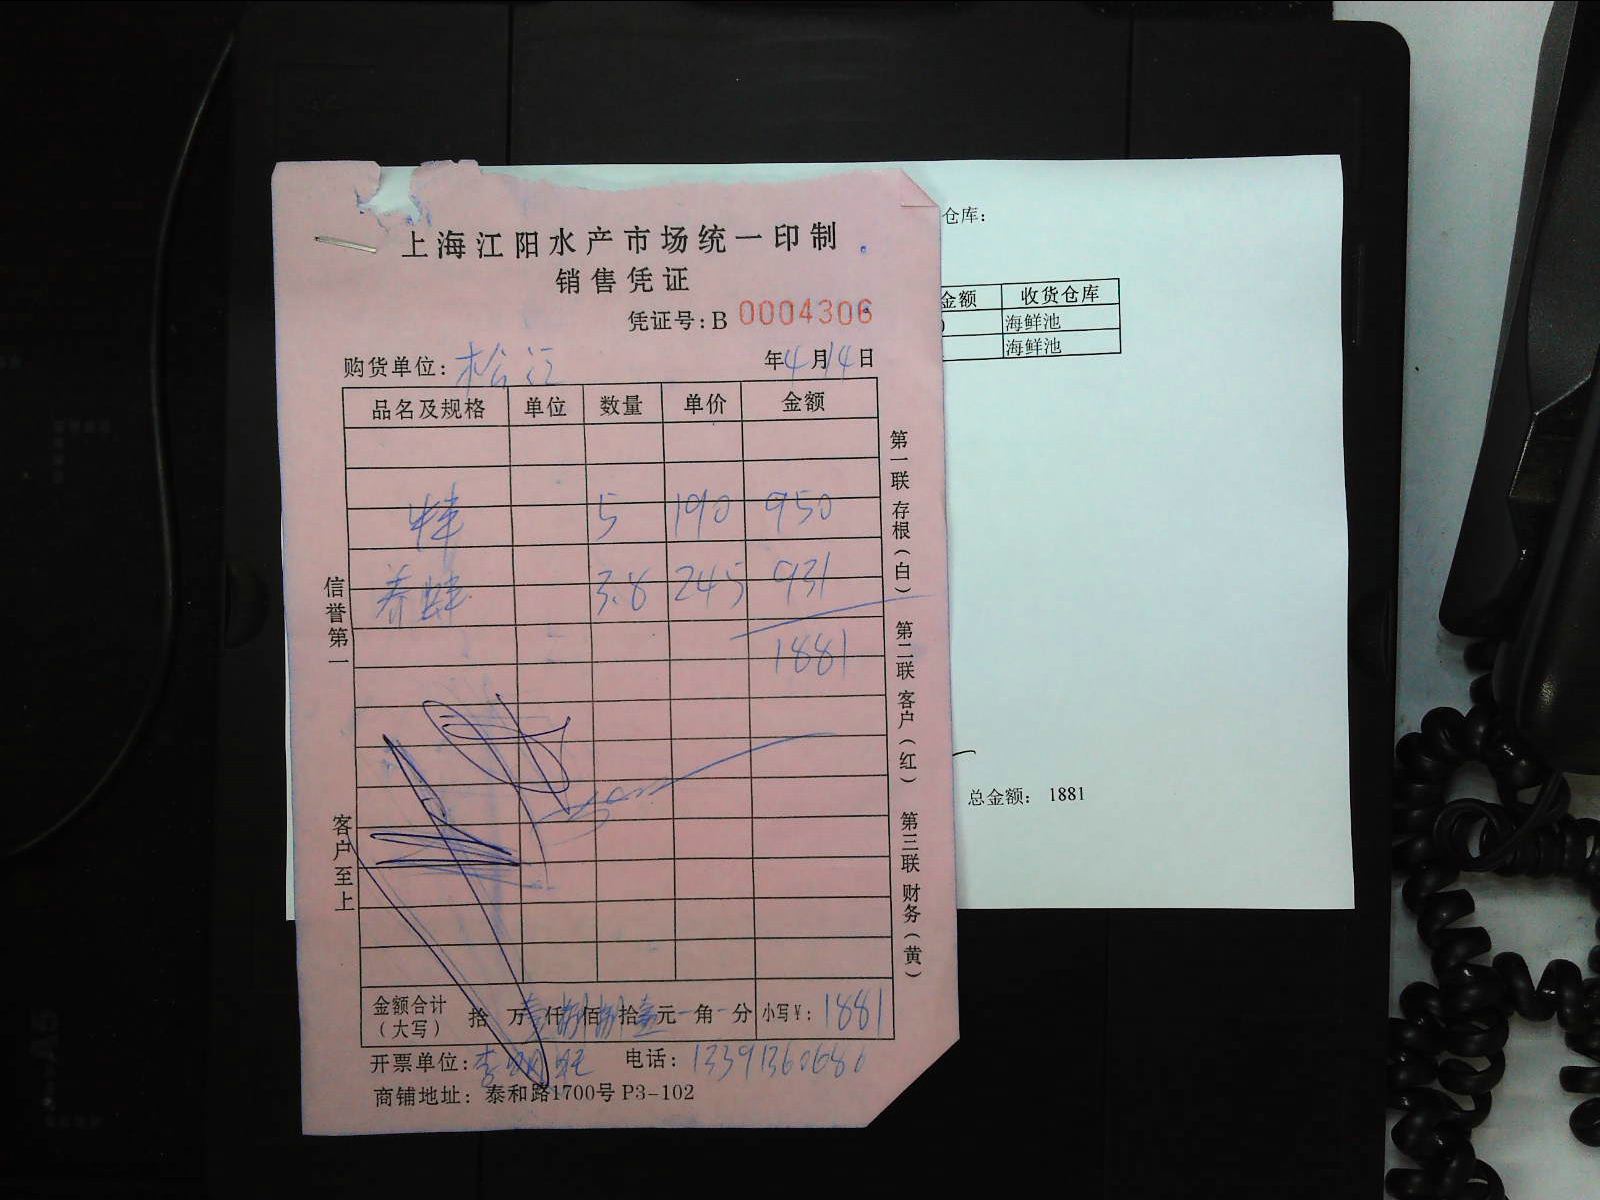 上海江阳水产市场统一印制
销售凭证
凭证号:B 0004306
购货单位:松江 年4月14日
品名及规格 单位 数量 单价 金额
5 190 950
3.8 245 931
1881
金额合计(大写) 拾 万壹仟捌佰捌拾壹元 角 分 小写¥: 1881
开票单位:李明旺 电话:
商铺地址: 泰和路1700号 P3-102
信誉第一
客户至上
第一联 存根(白)
第二联 客户(红)
第三联 财务(黄)
仓库:
金额 收货仓库
海鲜池
海鲜池
总金额: 1881